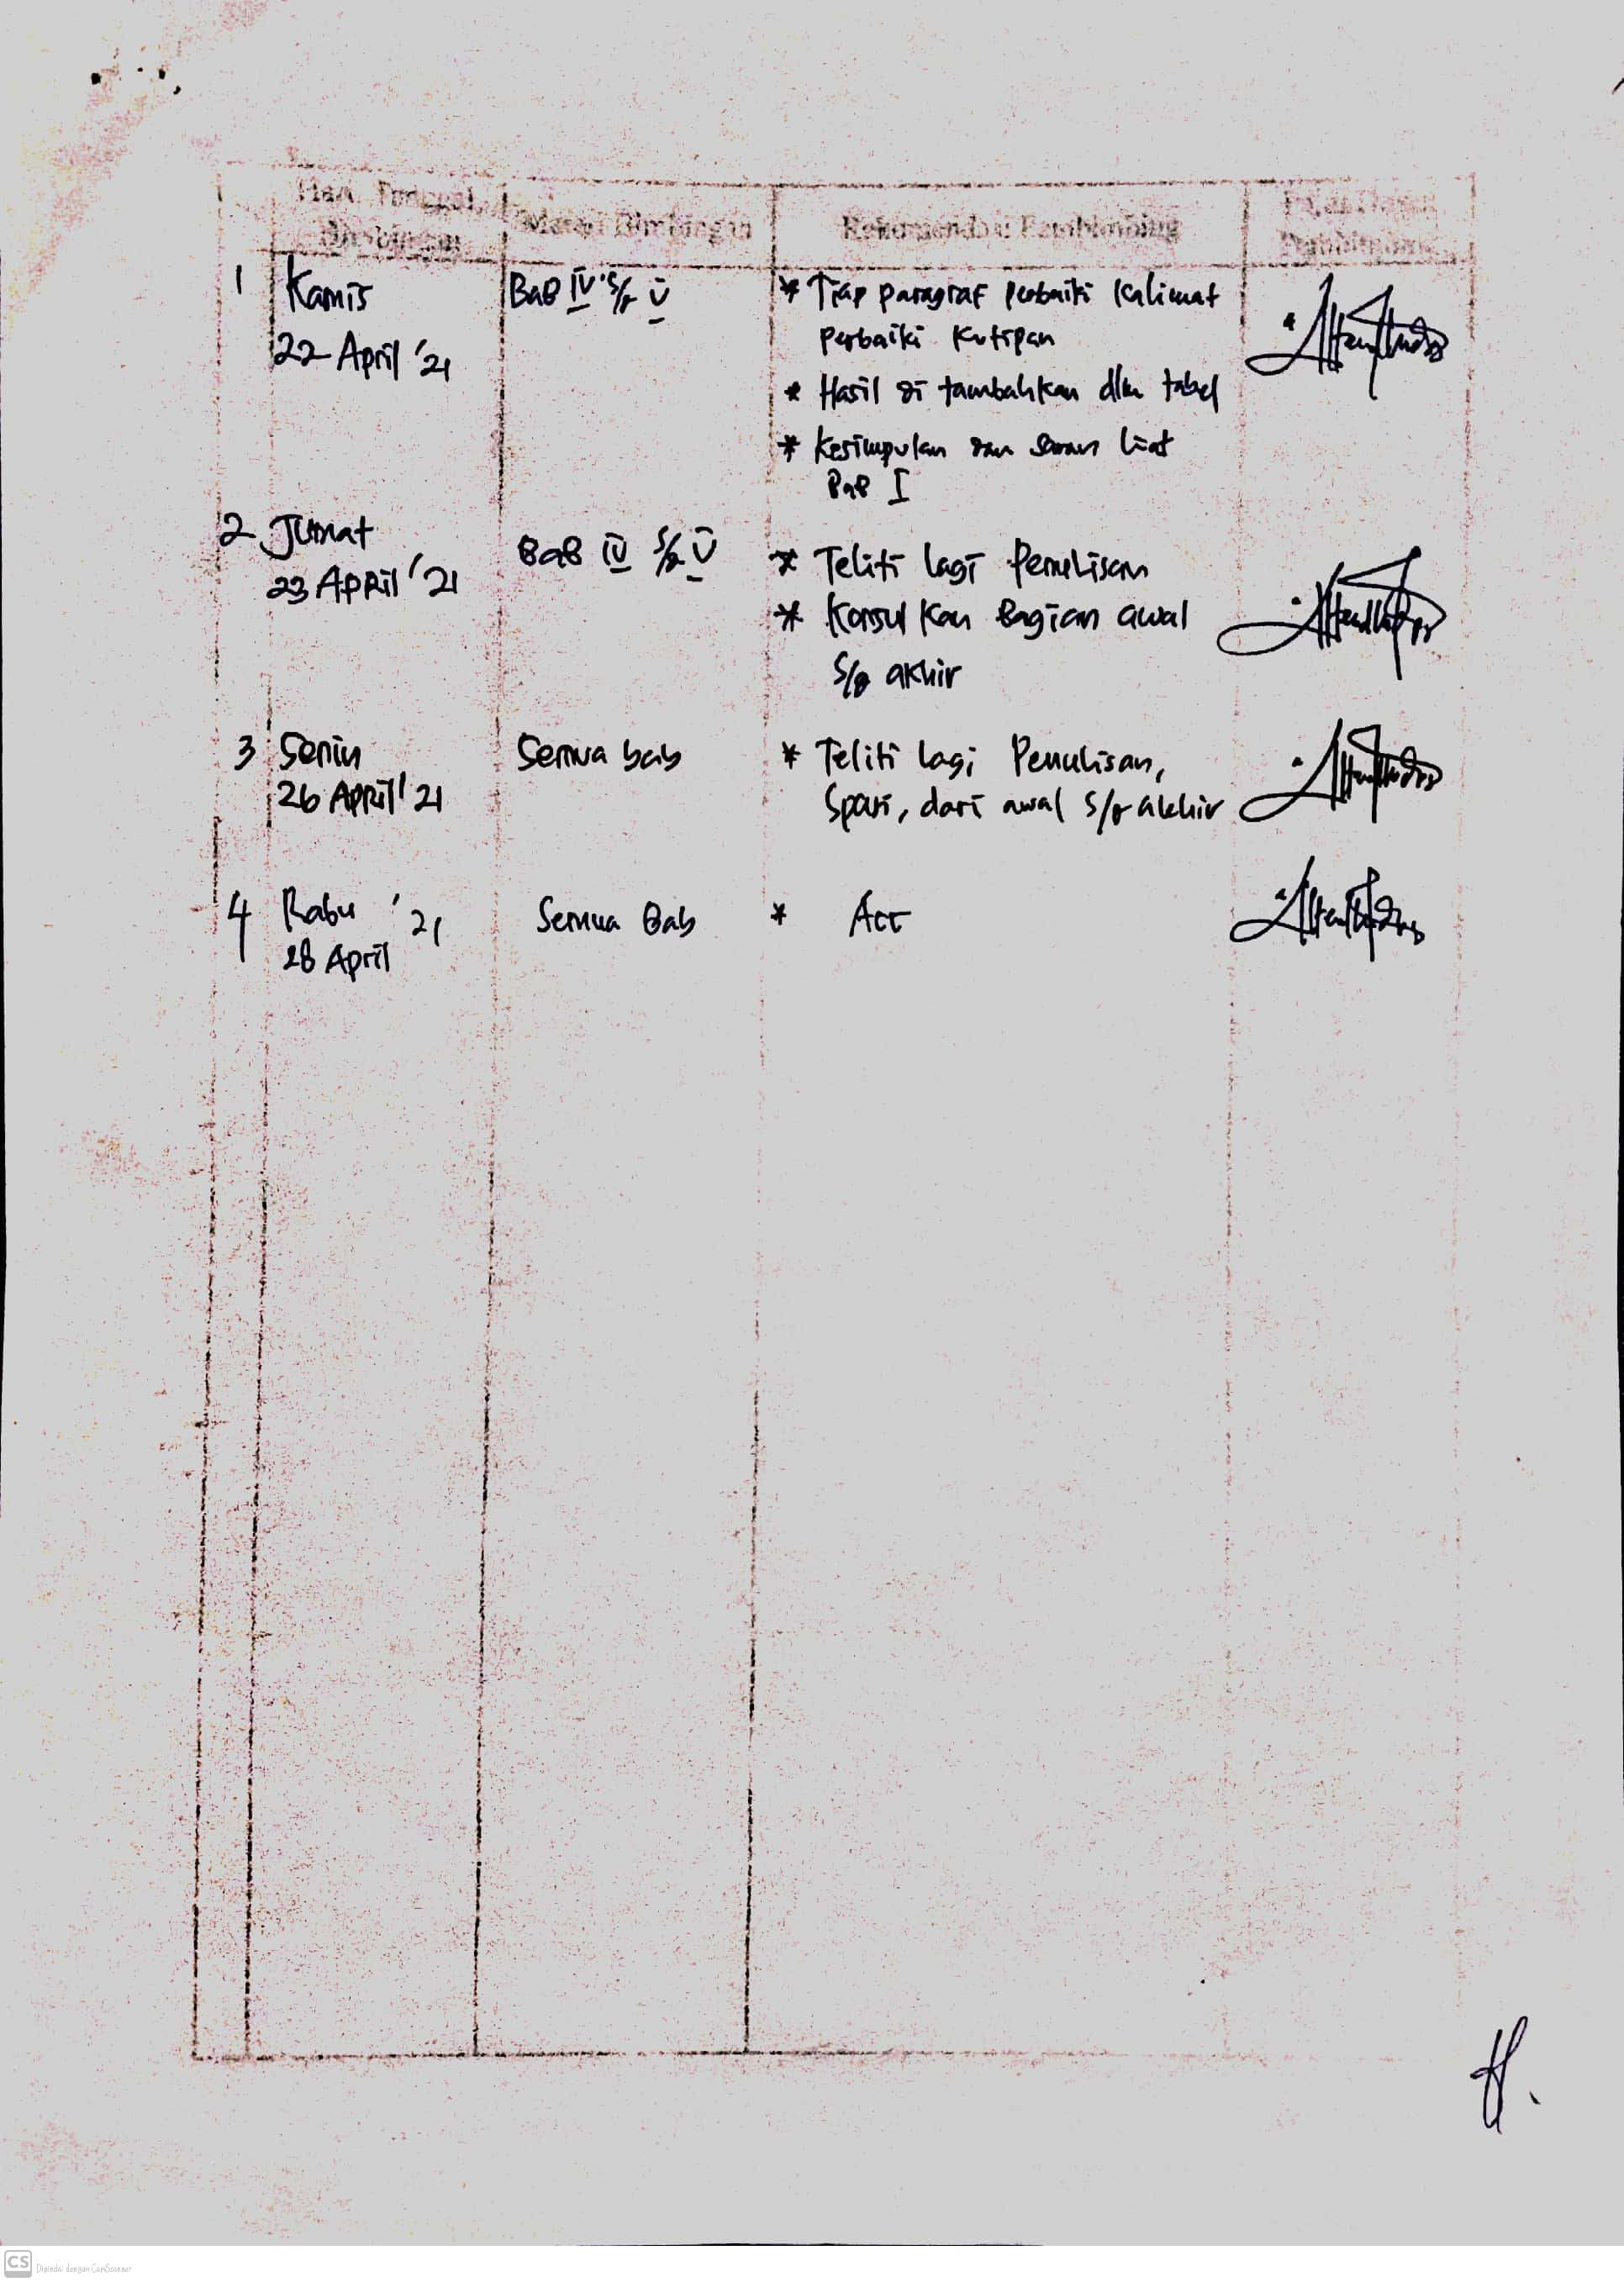 Hari Tanggal Bimbingan
Materi Bimbingan
Rekomendasi Pembimbing
1 Kamis
22 April '21
Bab IV s/d V
* Tiap paragraf perbaiki kalimat
perbaiki kutipan
* Hasil di tambahkan dlm tabel
* Kesimpulan dan saran liat
Bab I
2 Jumat
23 April '21
Bab IV s/d V
* Teliti lagi Penulisan
* Konsulkan Bagian awal
s/d akhir
3 Senin
26 April '21
Semua bab
* Teliti lagi Penulisan,
Spasi, dari awal s/d akhir
4 Rabu '21
28 April
Semua Bab
* Acc
CS Dipindai dengan CamScanner